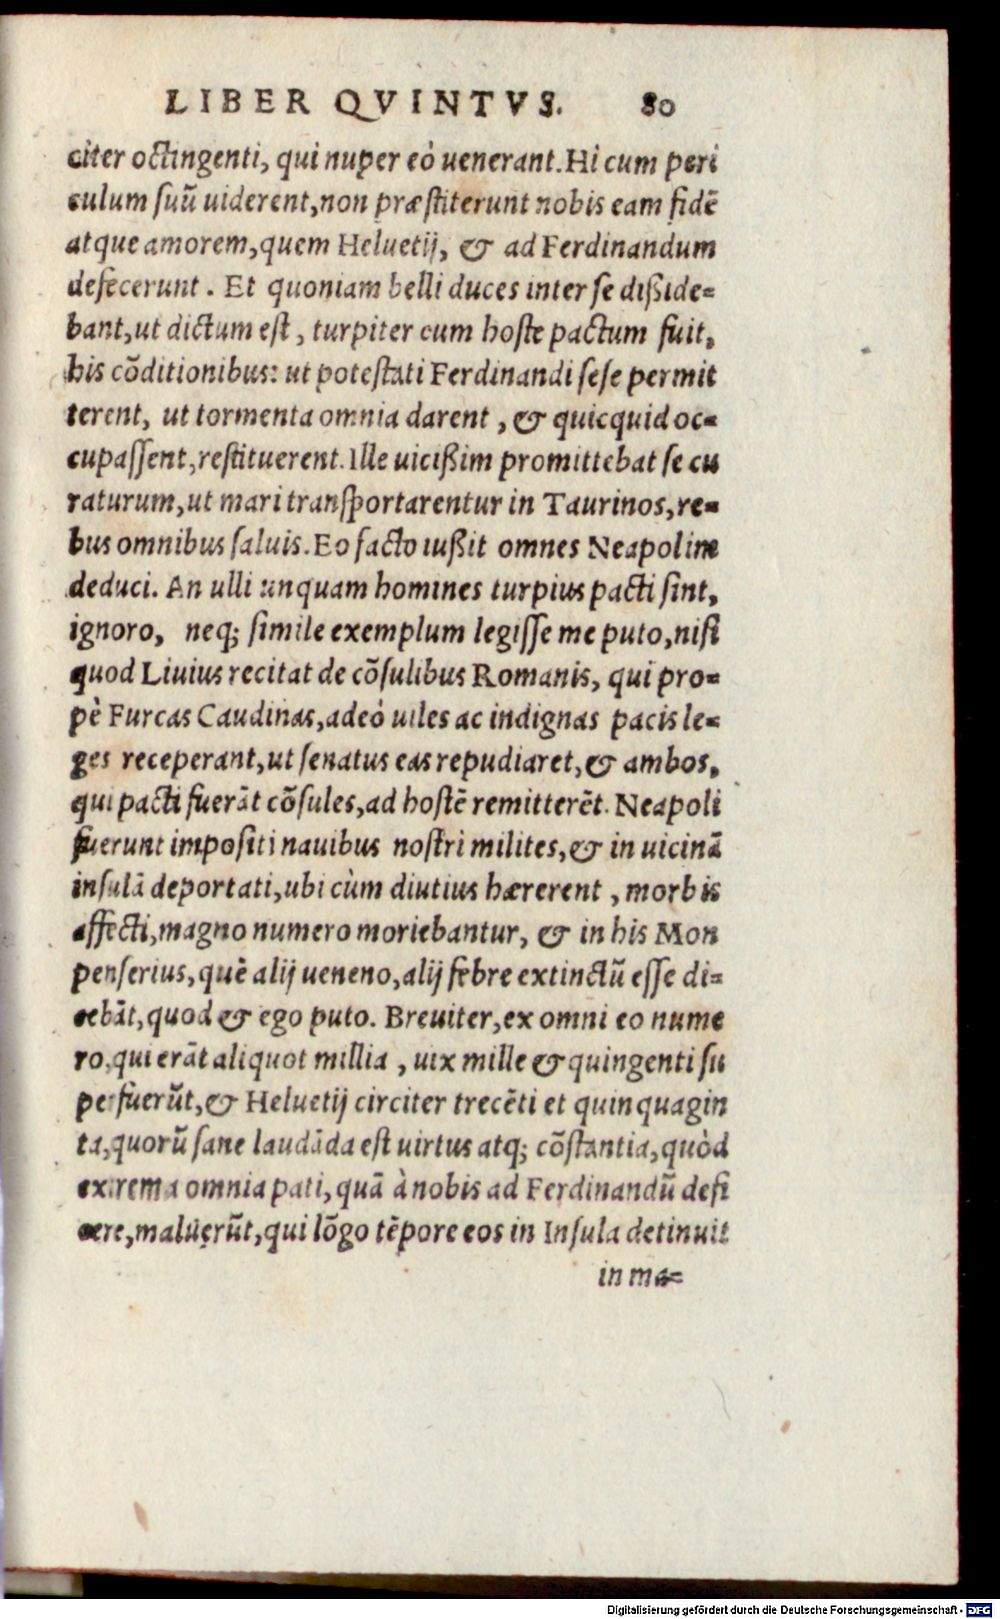 LIBER QVINTVS. 80
citer octingenti, qui nuper eò uenerant. Hi cum peri
culum suũ uiderent, non præstiterunt nobis eam fidẽ
atque amorem, quem Heluetij, & ad Ferdinandum
defecerunt. Et quoniam belli duces inter se dißide=
bant, ut dictum est, turpiter cum hoste pactum fuit,
his cõditionibus: ut potestati Ferdinandi sese permit
terent, ut tormenta omnia darent, & quicquid oc=
cupassent, restituerent. Ille uicißim promittebat se cu
raturum, ut mari transportarentur in Taurinos, re=
bus omnibus saluis. Eo facto iußit omnes Neapolim
deduci. An ulli unquam homines turpius pacti sint,
ignoro, neq; simile exemplum legisse me puto, nisi
quod Liuius recitat de cõsulibus Romanis, qui pro=
pè Furcas Caudinas, adeò uiles ac indignas pacis le=
ges receperant, ut senatus eas repudiaret, & ambos,
qui pacti fuerãt cõsules, ad hostẽ remitterẽt. Neapoli
fuerunt impositi nauibus nostri milites, & in uicinã
insulã deportati, ubi cùm diutius hærerent, morbis
affecti, magno numero moriebantur, & in his Mon
penserius, quẽ alij ueneno, alij febre extinctũ esse di=
cebãt, quod & ego puto. Breuiter, ex omni eo nume
ro, qui erãt aliquot millia, uix mille & quingenti su
perfuerũt, & Heluetij circiter trecẽti et quinquagin
ta, quorũ sane laudãda est uirtus atq; cõstantia, quòd
extrema omnia pati, quã à nobis ad Ferdinandũ defi
cere, maluerũt, qui lõgo tẽpore eos in Insula detinuit
in ma=
Digitalisierung gefördert durch die Deutsche Forschungsgemeinschaft - DFG